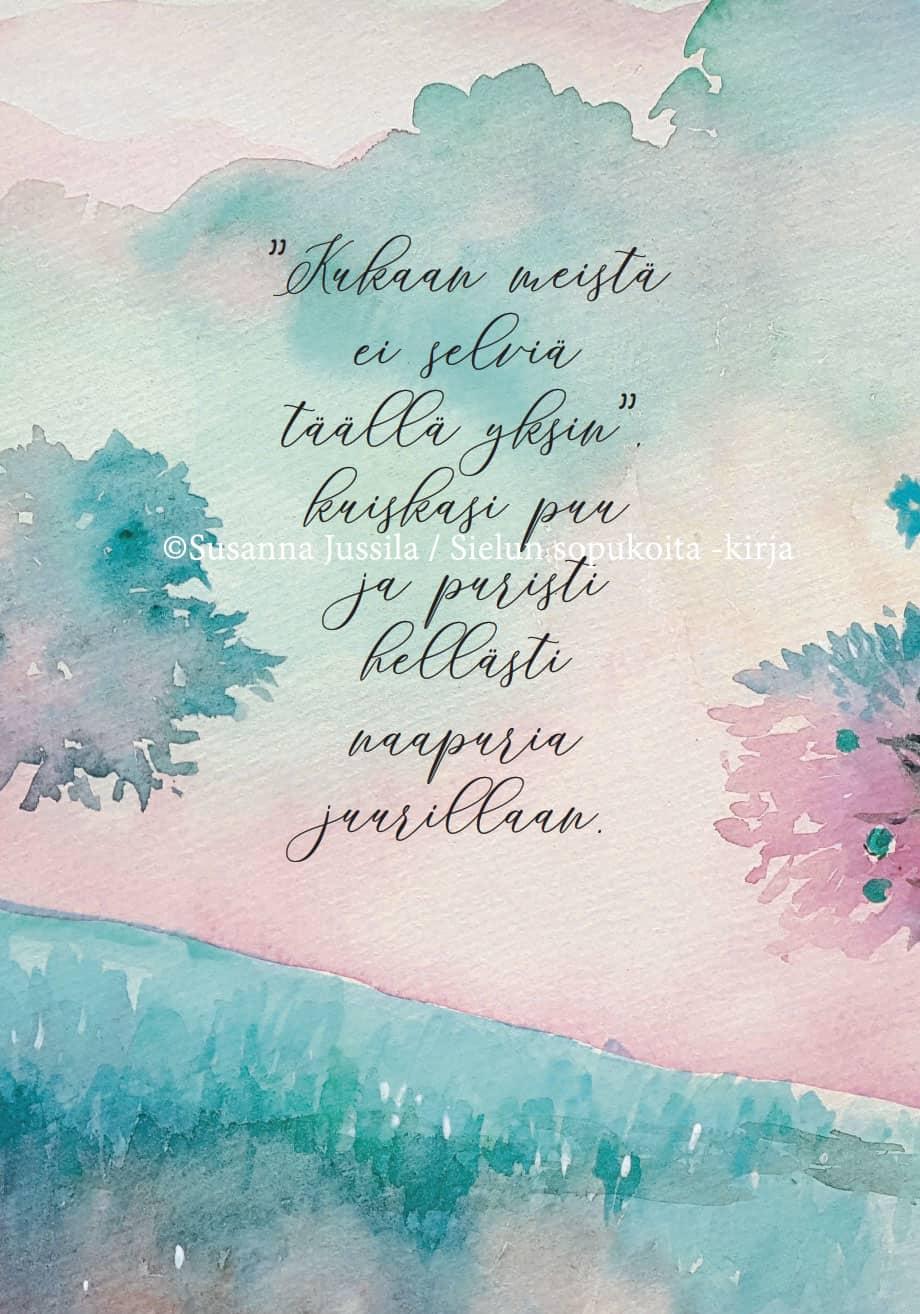 ”Kukaan meistä
ei selviä
täällä yksin”,
kuiskasi puu
©Susanna Jussila / Sielun sopukoita -kirja
ja puristi
hellästi
naapuria
juurillaan.